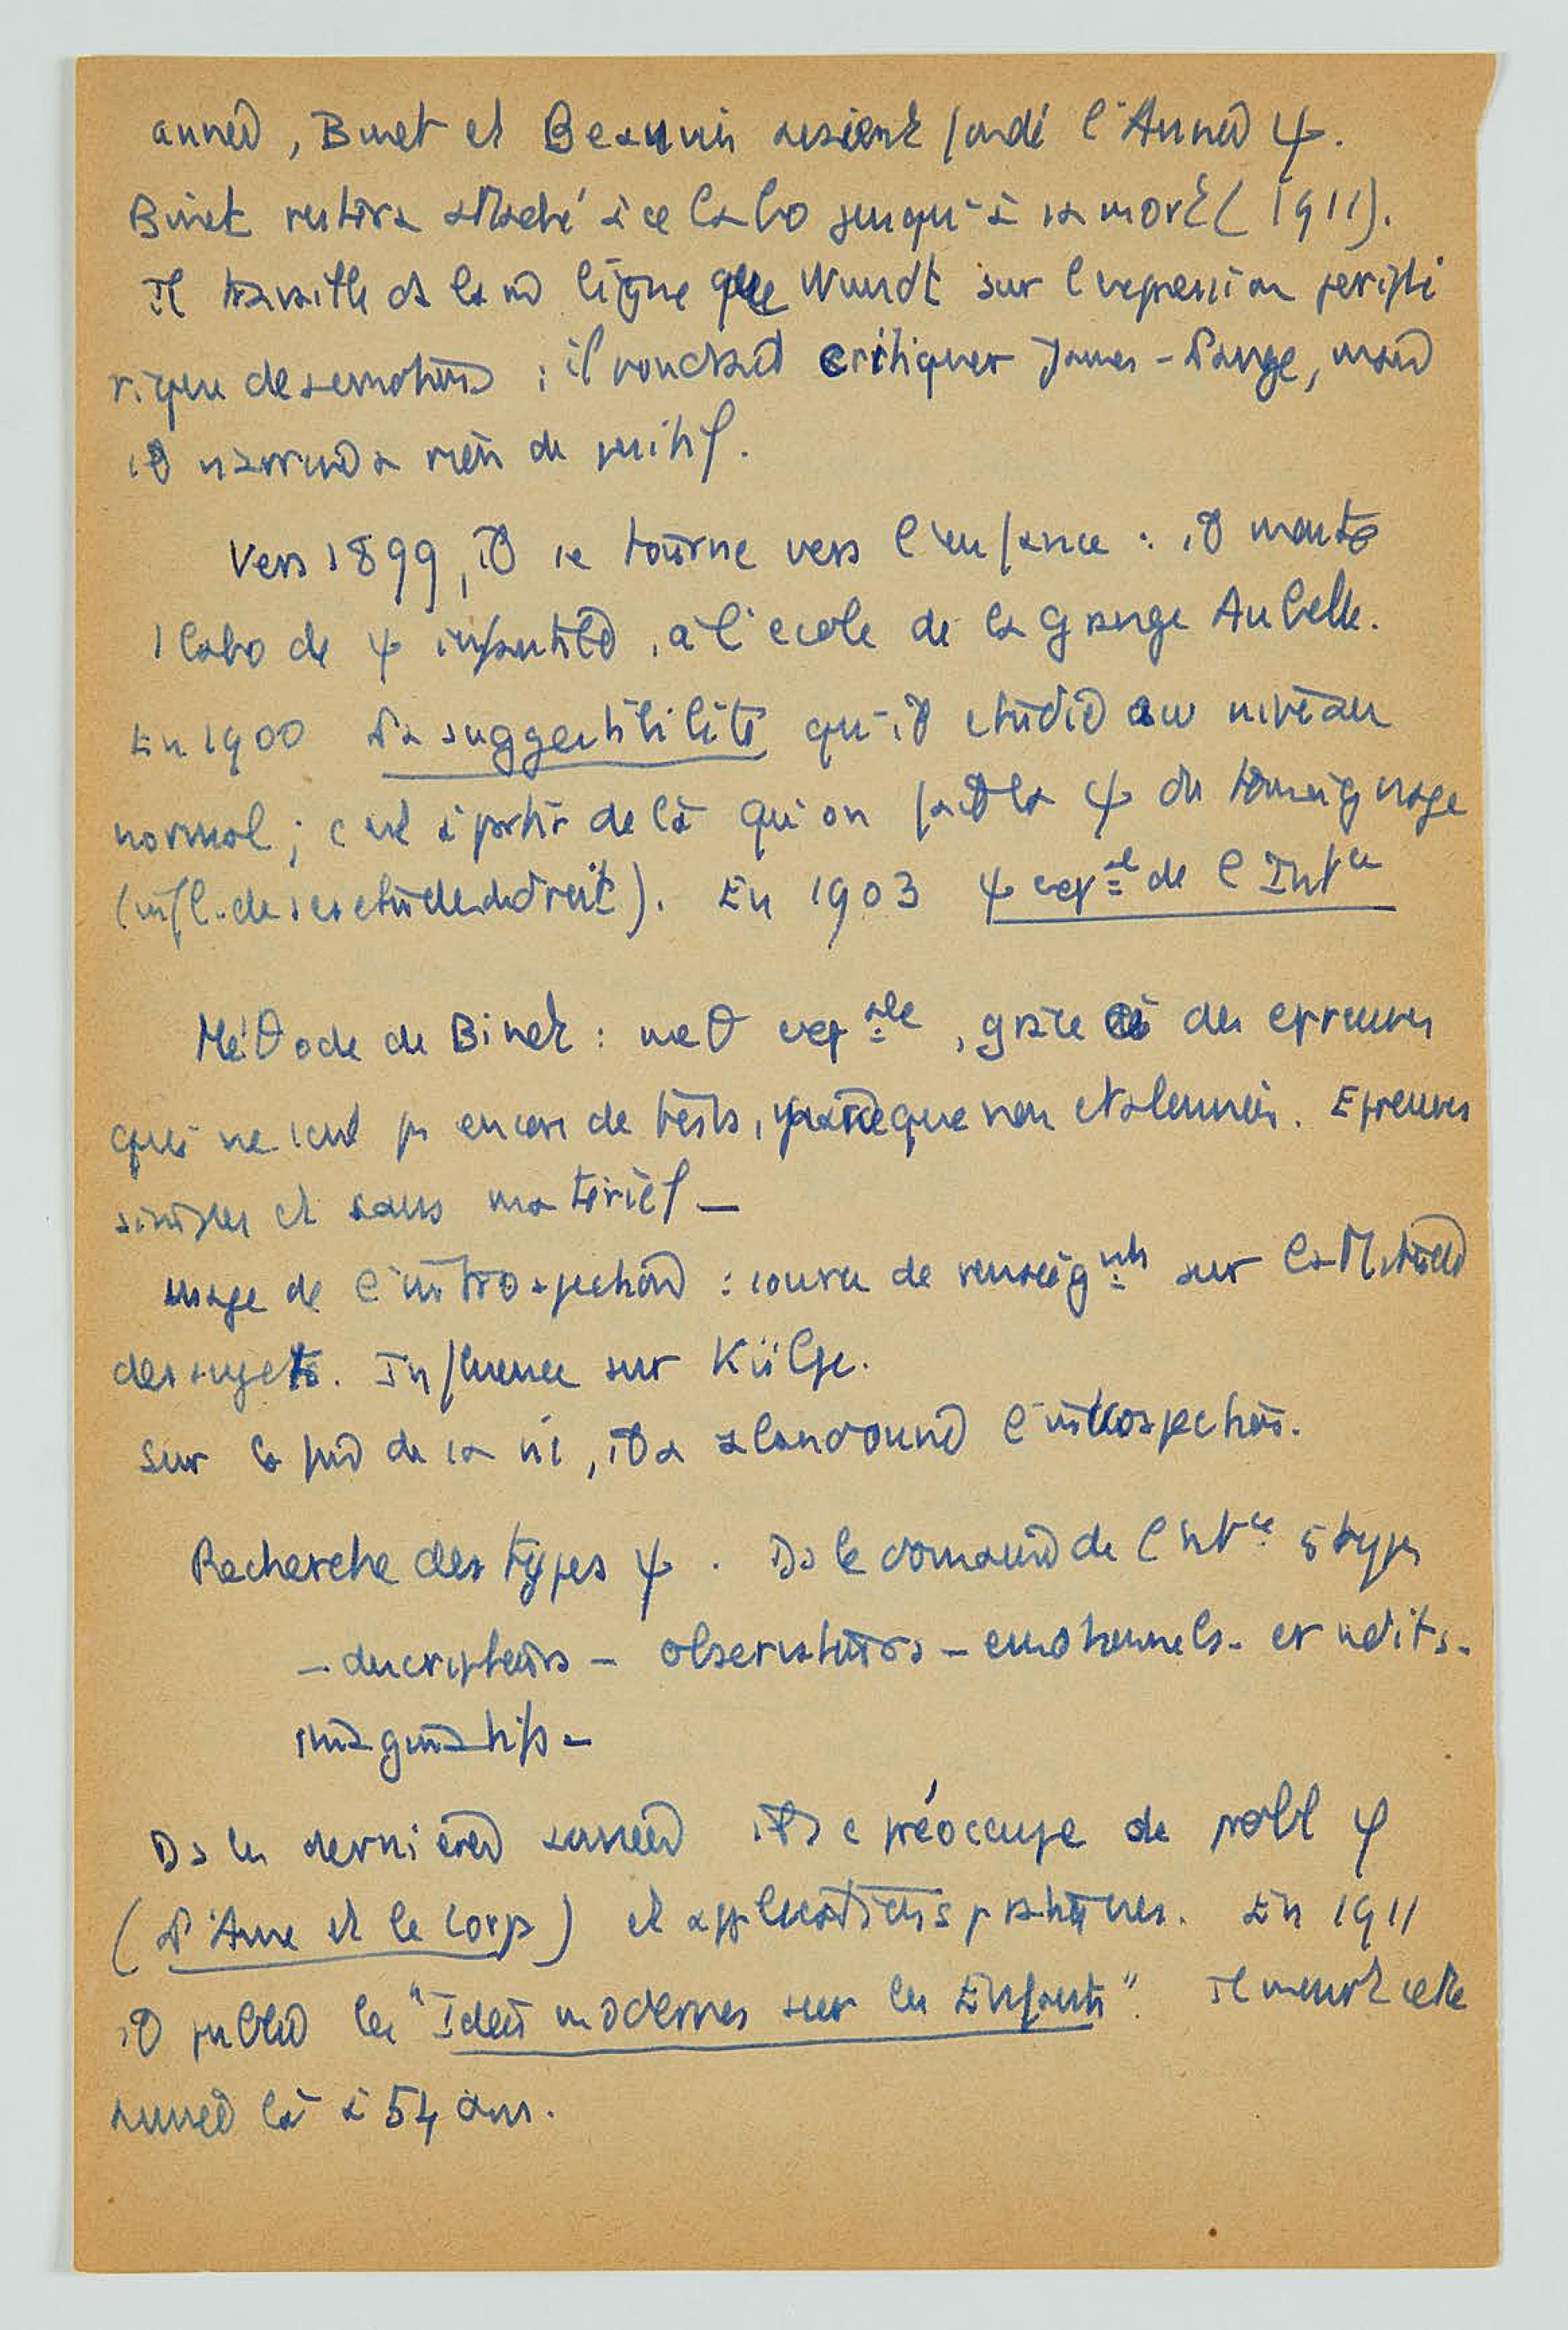 année, Binet et Beaunis avaient fondé l'Année ψ.
Binet restera attaché à ce labo jusqu'à sa mort (1911).
Il travaille ds la m ligne que Wundt sur l'expression périphé
rique des emotions ; il voudrait critiquer James-Lange, mais
il n'arrive à rien de positif.
Vers 1899, il se tourne vers l'enfance : il monte
1 labo de ψ infantile, à l'ecole de la Grange Aubelle.
En 1900 La suggestibilité qu'il étudie au niveau
normal ; c'est à partir de là qu'on fait la ψ du témoignage
(infl. de ses etudes de droit). En 1903 ψ expale de l'Intce
Méθode de Binet : meθ expale, grâce à des epreuves
qui ne sont ps encore de tests, parce que non etalonnées. Epreuves
simples et sans matériel –
usage de l'introspection : source de renseignmts sur l'attitude
des sujets. Influence sur Külpe.
Sur la fin de sa vie, il a abandonné l'introspection.
Recherche des types ψ. Ds le domaine de l'intce 5 types
– descripteurs – observateurs – emotionnels – erudits –
imaginatifs –
Ds les dernières années il se préoccupe de probl φ
(L'Ame et le Corps) et applications pratiques. En 1911
il publie les "Idées modernes sur les Enfants". Il meurt cette
année là à 54 ans.